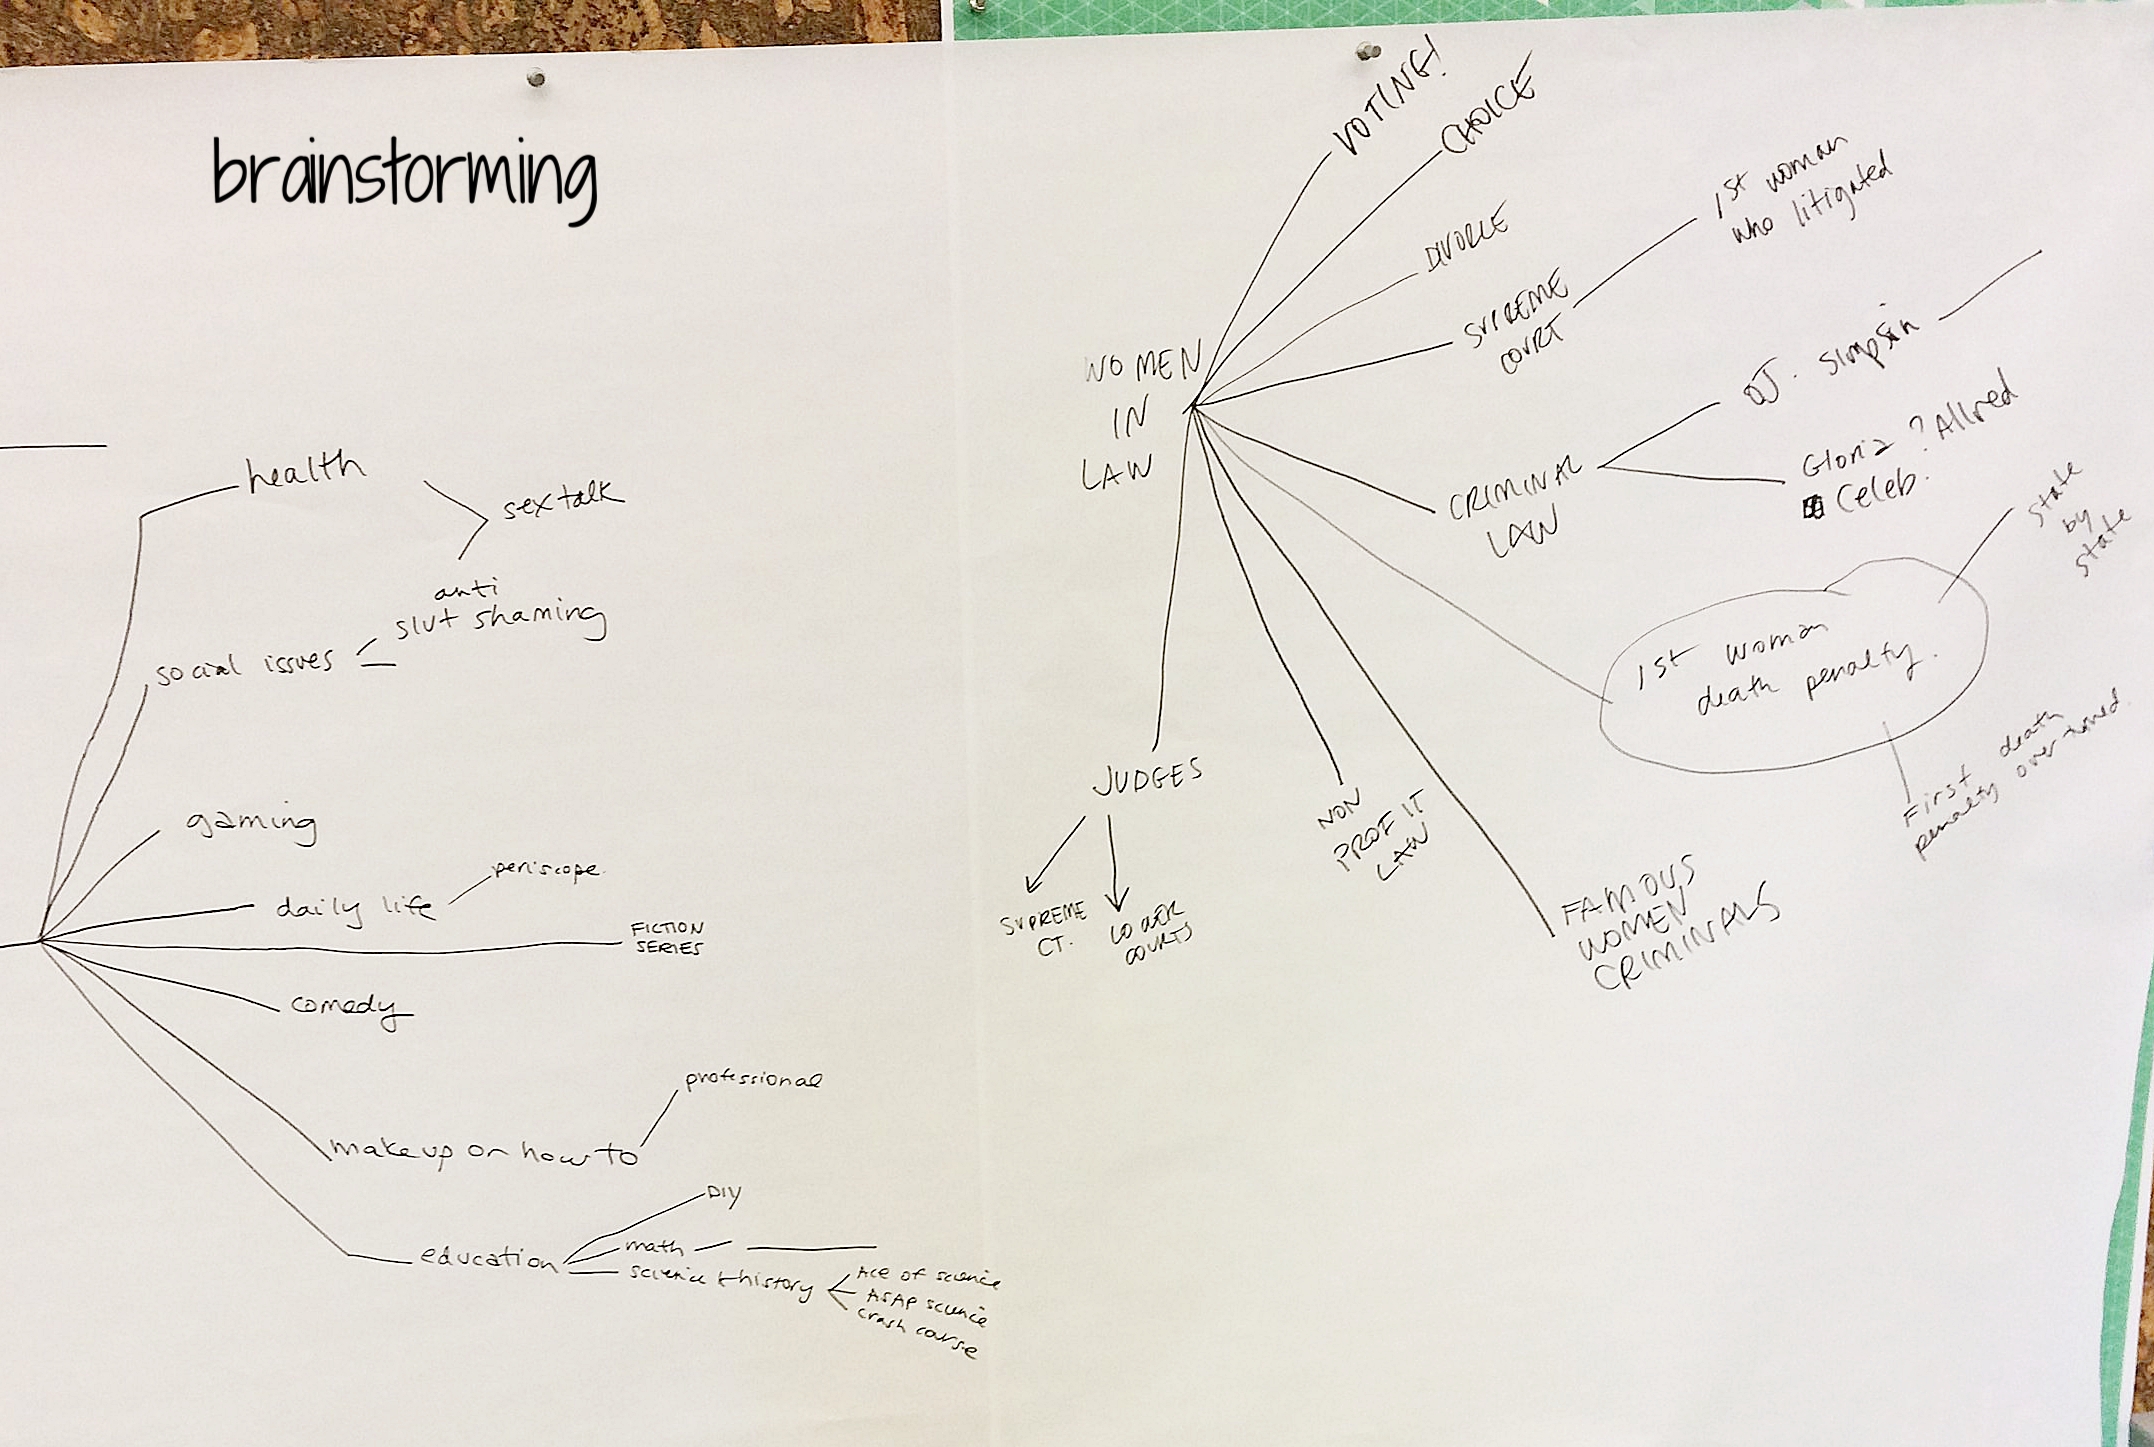 brainstorming
health
sex talk
anti
slut shaming
social issues
gaming
daily life
periscope
FICTION
SERIES
comedy
professional
makeup or how to
DIY
education
math
science & history
Ace of science
ASAP science
crash course
WOMEN
IN
LAW
VOTING!
CHOICE
DIVORCE
SUPREME
COURT
1st woman
who litigated
CRIMINAL
LAW
OJ. Simpson
Gloria ? Allred
Celeb.
1st woman
death penalty.
state
by
state
First death
penalty overturned.
FAMOUS
WOMEN
CRIMINALS
NON
PROFIT
LAW
JUDGES
SUPREME
CT.
LOWER
COURTS